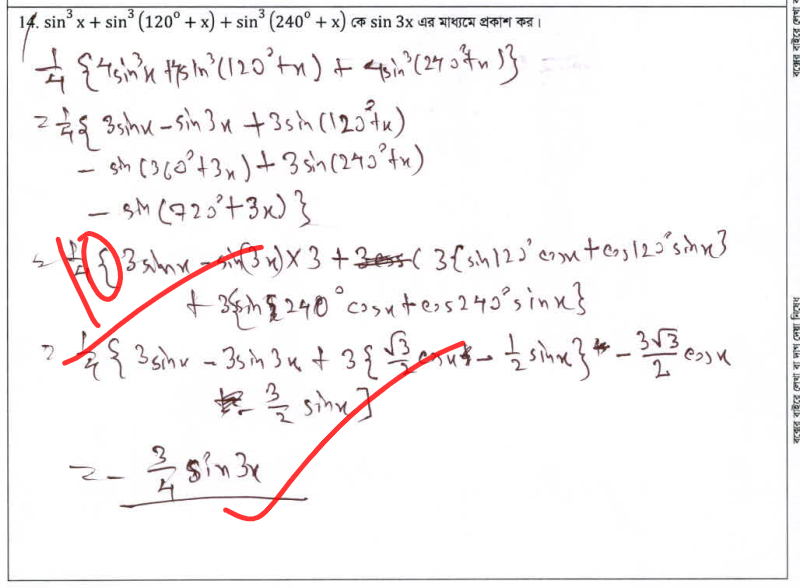 14. sin³ x + sin³ (120° + x) + sin³ (240° + x) কে sin 3x এর মাধ্যমে প্রকাশ কর।
1/4 {4sin³x + 4sin³(120° + x) + 4sin³(240° + x)}
= 1/4 { 3sinx - sin3x + 3sin(120° + x)
- sin(360° + 3x) + 3sin(240° + x)
- sin(720° + 3x)}
= 1/4 { 3sinx - sin(3x) × 3 + ( 3{sin120° cosx + cos120° sinx}
+ 3{sin 240° cosx + cos240° sinx}
= 1/4 { 3sinx - 3sin3x + 3{√3/2 cosx - 1/2 sinx} - 3√3/2 cosx
- 3/2 sinx]
= - 3/4 sin3x
10
বক্সের বাইরে লেখা বা দাগ দেয়া নিষেধ
বক্সের বাইরে লেখা ব